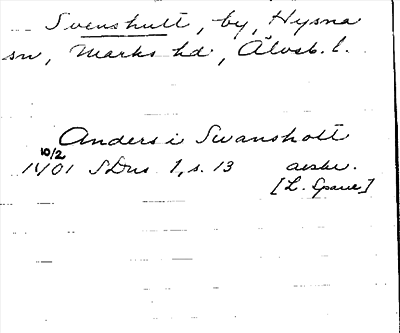 Svenshult, by, Hysna
sn, Marks hd, Älvsb. l.
Anders i Swansholt
10/2
1401 SDns 1, s. 13 avskr.